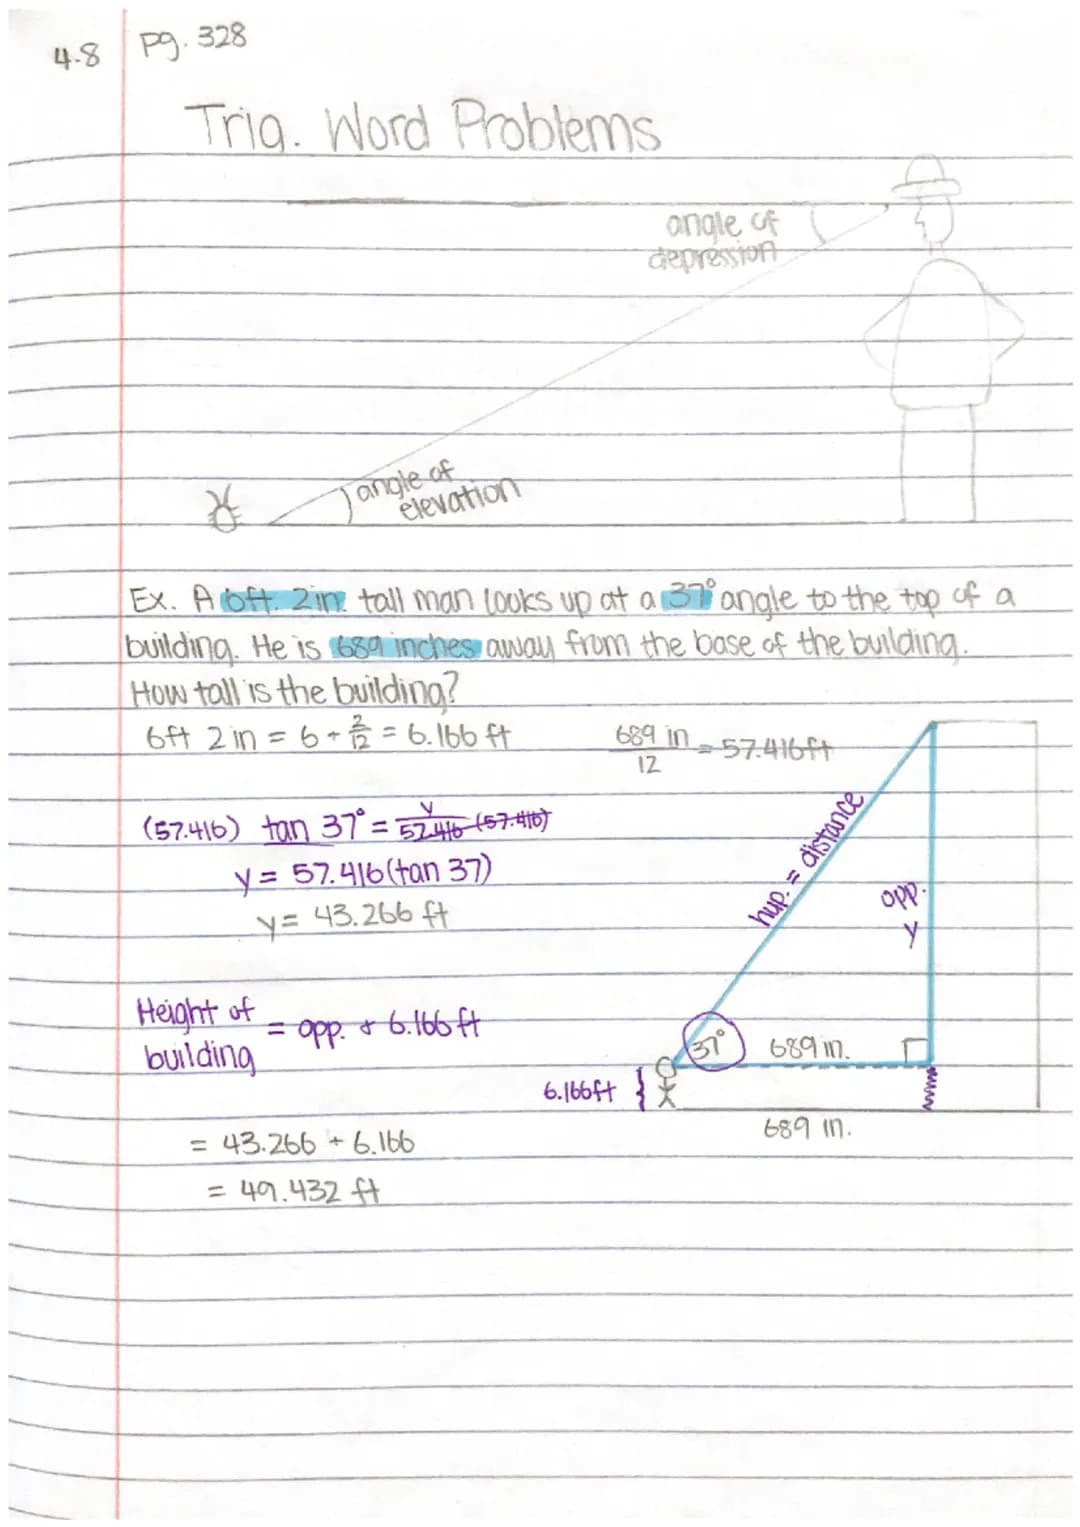 4.8 pg. 328
Trig. Word Problems
angle of
depression
angle of
elevation
Ex. A 6ft. 2in. tall man looks up at a 37° angle to the top of a
building. He is 689 inches away from the base of the building.
How tall is the building?
6ft 2in = 6 + 2/12 = 6.166 ft
689 in / 12 = 57.416ft
(57.416) tan 37° = y/57.416 (57.416)
y = 57.416(tan 37)
y = 43.266 ft
hyp. = distance
opp.
y
Height of
building = opp. + 6.166 ft
37° 689 in.
6.166ft {
689 in.
= 43.266 + 6.166
= 49.432 ft